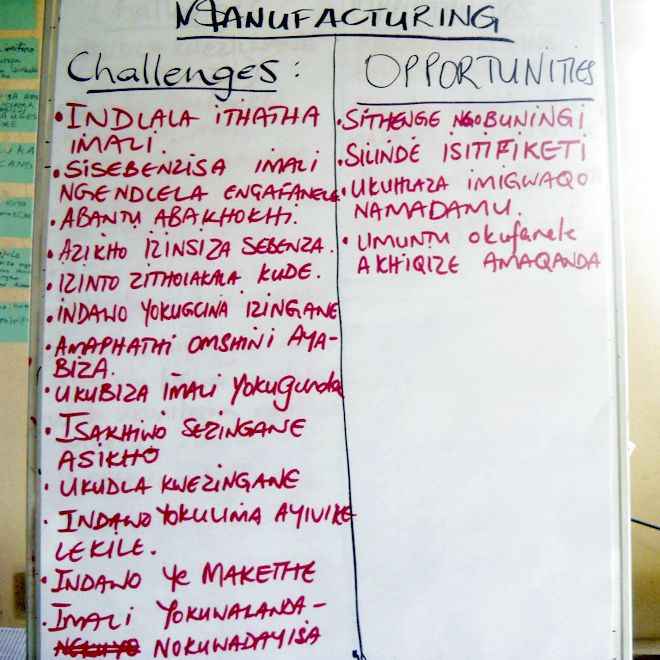 MANUFACTURING
Challenges:
• INDLALA ITHATHA
IMALI.
• SISEBENZISA IMALI
NGENDLELA ENGAFANELE
• ABANTU ABAKHOKHI.
• AZIKHO IZINSIZA SEBENZA.
• IZINTO ZITHOLAKALA KUDE.
• INDAWO YOKUGCINA IZINGANE
• AMAPHATHI OMSHINI AYA-
BIZA.
• UKUBIZA IMALI YOKUGUNDA
• ISAKHIWO SEZINGANE
ASIKHO
• UKUDLA KWEZINGANE
• INDAWO YOKULIMA AYIVIKE
LEKILE.
• INDAWO YE MAKETHE
• IMALI YOKUWALANDA -
NOKUWADAYISA
OPPORTUNITIES
• SITHENGE NGOBUNINGI
• SILINDE ISITIFIKETI
• UKUHLAZA IMIGWAQO
NAMADAMU.
• UMUNTU okufanele
AKHIQIZE AMAQANDA